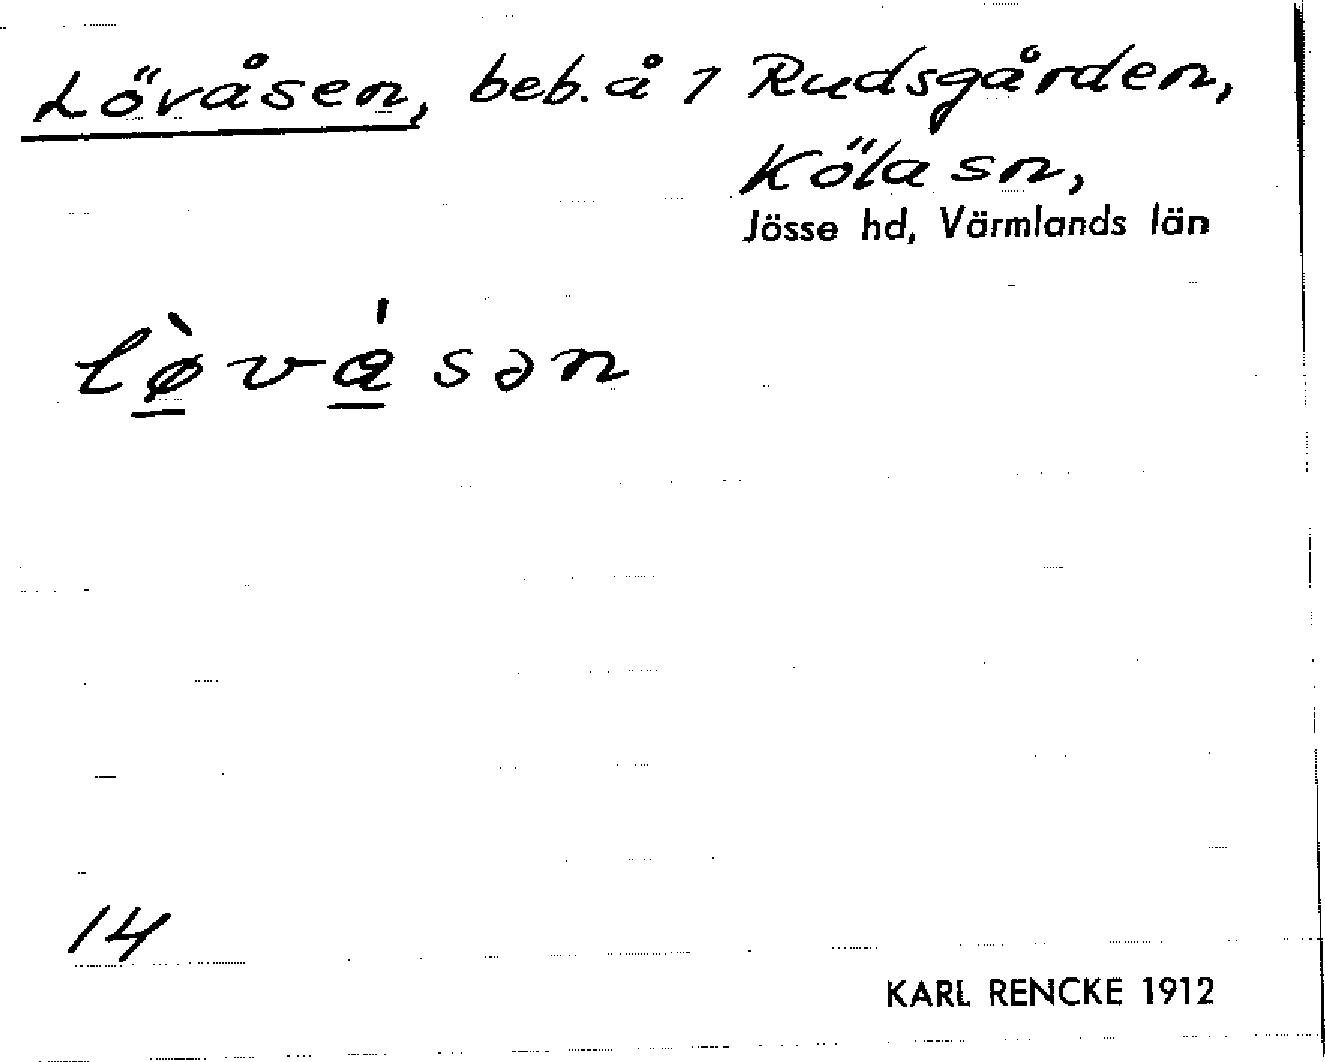 Lövåsen, beb. å 1 Rudsgården,
Köla sn,
Jösse hd, Värmlands län
lø̠̀vá̠sən
14
KARL RENCKE 1912